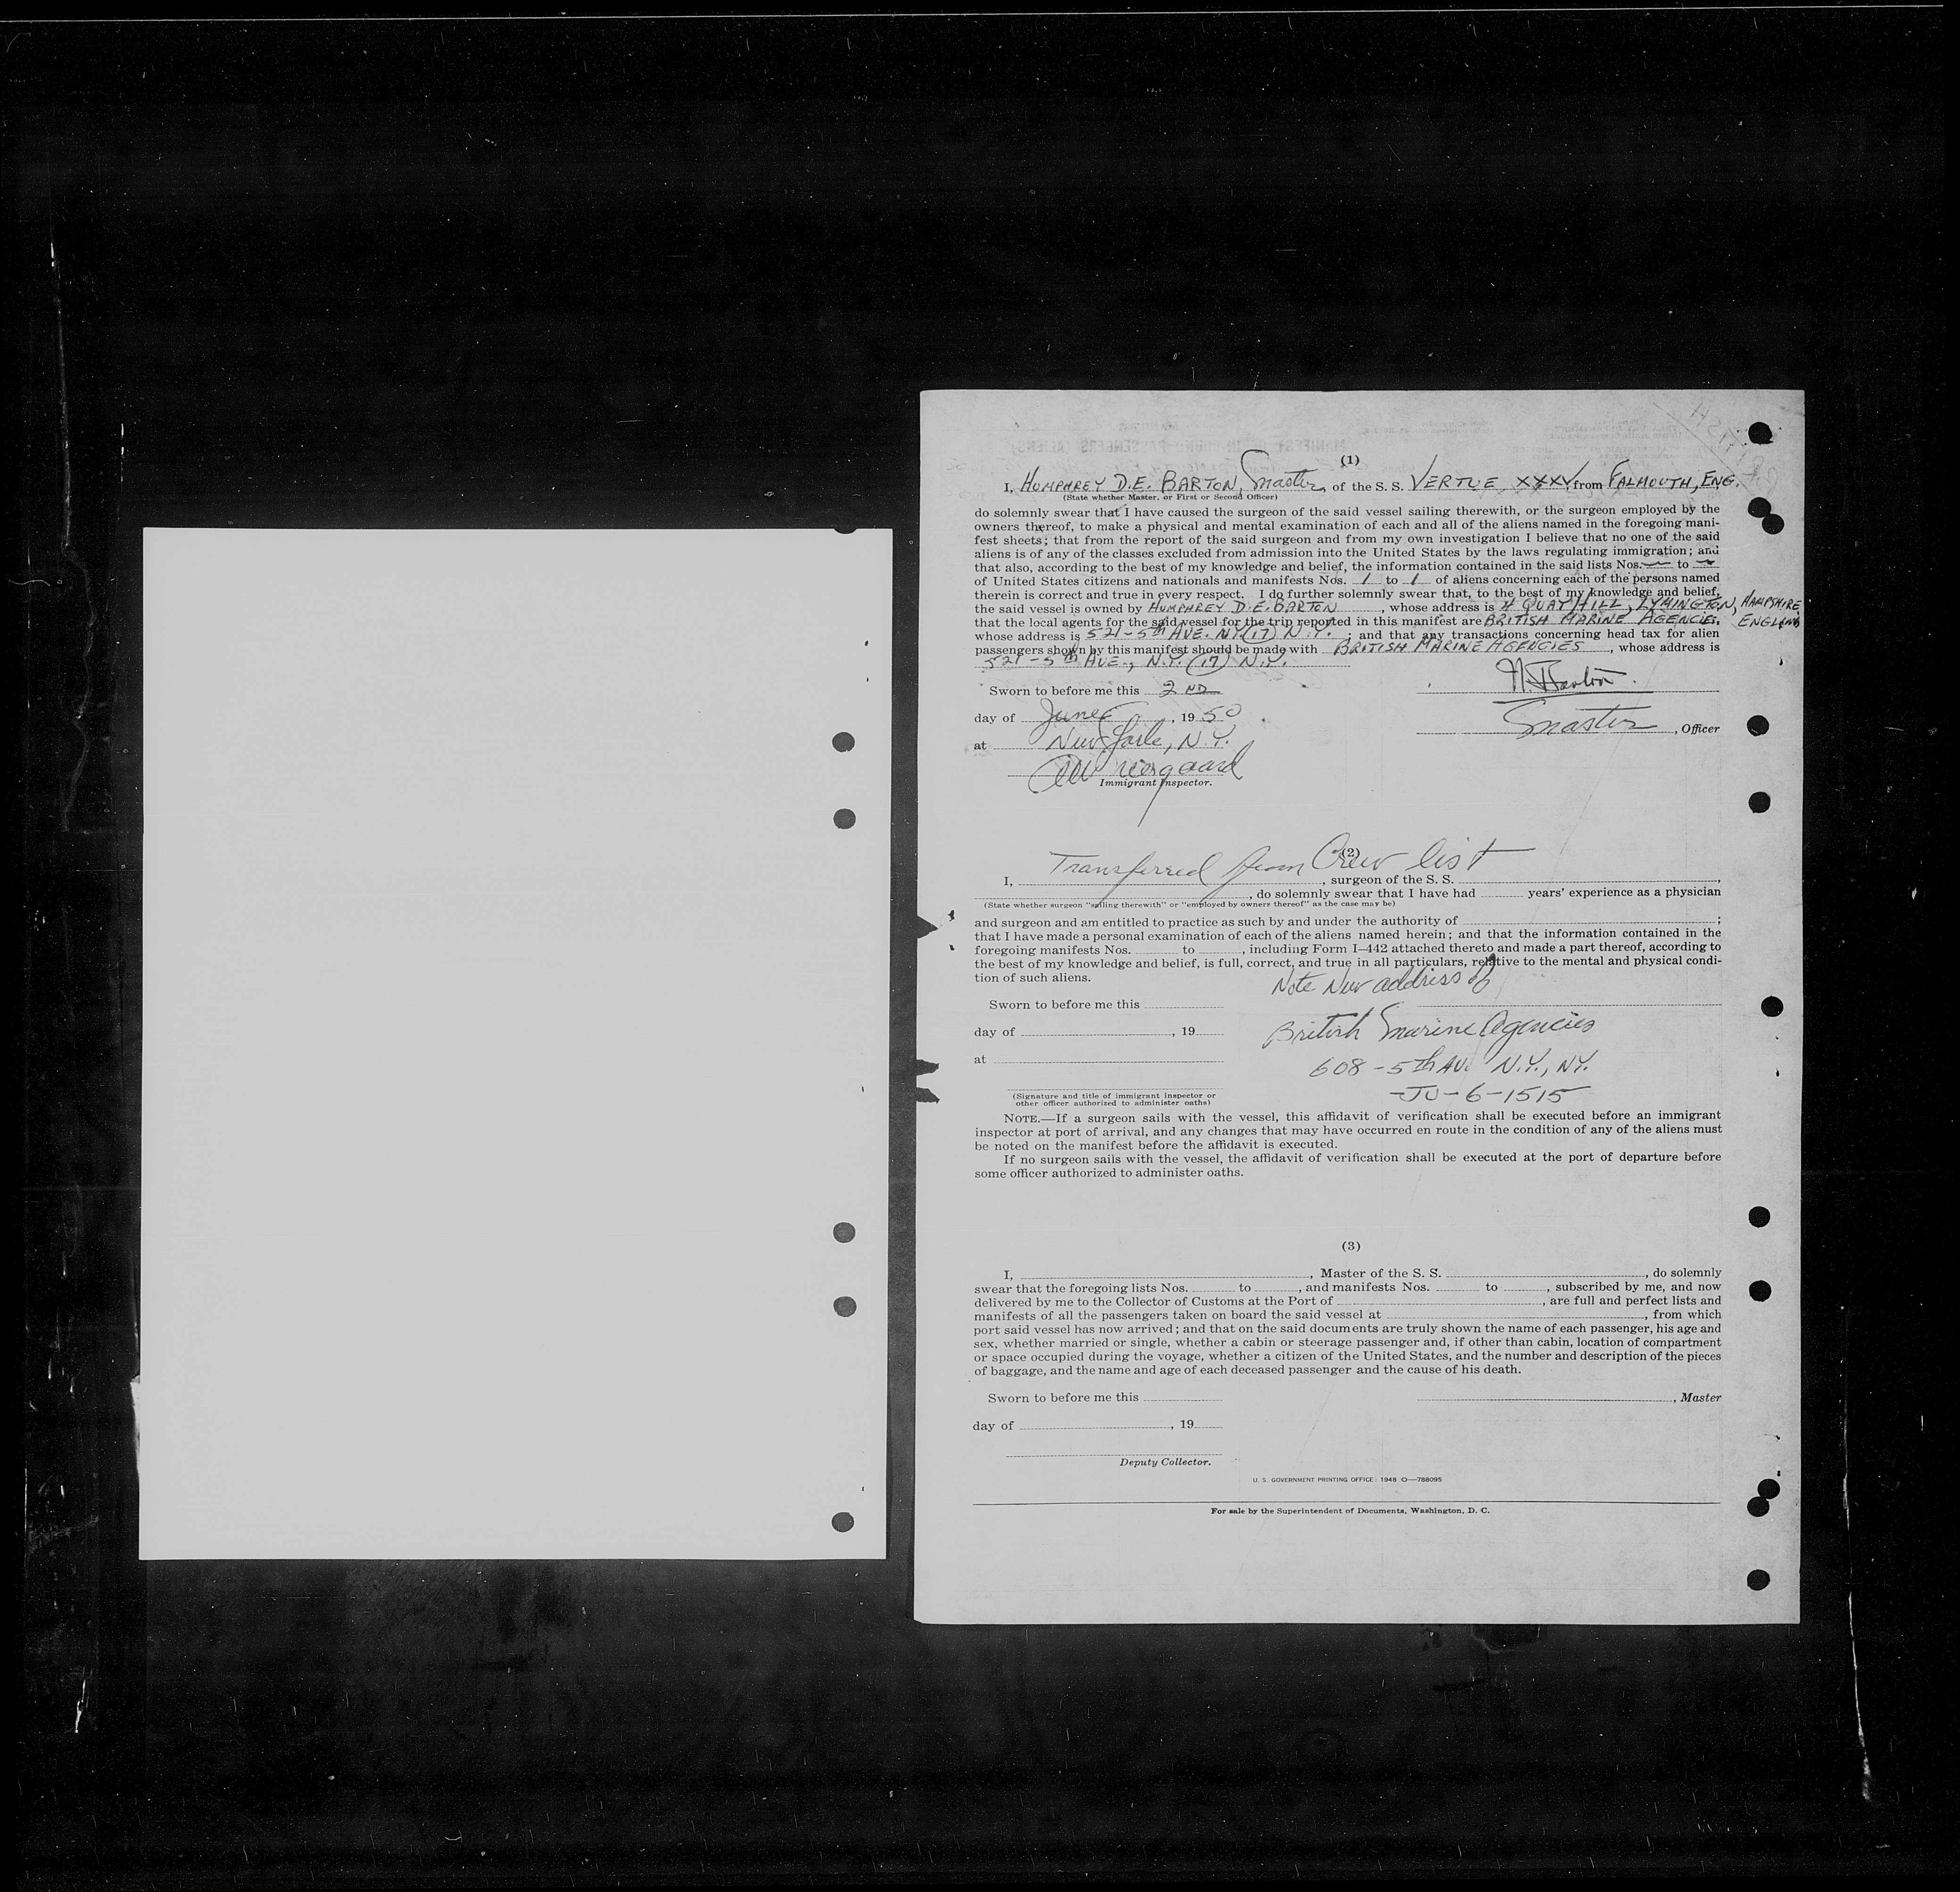 (1)
I, HUMPHREY D.E. BARTON, Master, of the S. S. VERTUE XXXV from FALMOUTH, ENG.
(State whether Master, or First or Second Officer)
do solemnly swear that I have caused the surgeon of the said vessel sailing therewith, or the surgeon employed by the
owners thereof, to make a physical and mental examination of each and all of the aliens named in the foregoing mani-
fest sheets; that from the report of the said surgeon and from my own investigation I believe that no one of the said
aliens is of any of the classes excluded from admission into the United States by the laws regulating immigration; and
that also, according to the best of my knowledge and belief, the information contained in the said lists Nos. — to —
of United States citizens and nationals and manifests Nos. 1 to 1 of aliens concerning each of the persons named
therein is correct and true in every respect. I do further solemnly swear that, to the best of my knowledge and belief,
the said vessel is owned by HUMPHREY D.E. BARTON, whose address is 4 QUAY HILL, LYMINGTON, HAMPSHIRE
that the local agents for the said vessel for the trip reported in this manifest are BRITISH MARINE AGENCIES, ENGLAND
whose address is 521-5th AVE. NY (17) N.Y.; and that any transactions concerning head tax for alien
passengers shown by this manifest should be made with BRITISH MARINE AGENCIES, whose address is
521-5th AVE., N.Y. (17) N.Y.
H. Barton.
Sworn to before me this 2ND
day of June, 1950
Master, Officer
at New York, N.Y.
Immigrant Inspector.
(2)
Transferred from Crew list
I, , surgeon of the S. S. ,
, do solemnly swear that I have had years' experience as a physician
(State whether surgeon "sailing therewith" or "employed by owners thereof" as the case may be)
and surgeon and am entitled to practice as such by and under the authority of ;
that I have made a personal examination of each of the aliens named herein; and that the information contained in the
foregoing manifests Nos. to , including Form I-442 attached thereto and made a part thereof, according to
the best of my knowledge and belief, is full, correct, and true in all particulars, relative to the mental and physical condi-
tion of such aliens.
Note New address of
Sworn to before me this
day of , 19
British Marine Agencies
at
608-5th AV. N.Y., NY.
JU-6-1515
(Signature and title of immigrant inspector or
other officer authorized to administer oaths)
NOTE.—If a surgeon sails with the vessel, this affidavit of verification shall be executed before an immigrant
inspector at port of arrival, and any changes that may have occurred en route in the condition of any of the aliens must
be noted on the manifest before the affidavit is executed.
If no surgeon sails with the vessel, the affidavit of verification shall be executed at the port of departure before
some officer authorized to administer oaths.
(3)
I, , Master of the S. S. , do solemnly
swear that the foregoing lists Nos. to , and manifests Nos. to , subscribed by me, and now
delivered by me to the Collector of Customs at the Port of , are full and perfect lists and
manifests of all the passengers taken on board the said vessel at , from which
port said vessel has now arrived; and that on the said documents are truly shown the name of each passenger, his age and
sex, whether married or single, whether a cabin or steerage passenger and, if other than cabin, location of compartment
or space occupied during the voyage, whether a citizen of the United States, and the number and description of the pieces
of baggage, and the name and age of each deceased passenger and the cause of his death.
Sworn to before me this
, Master
day of , 19
Deputy Collector.
U. S. GOVERNMENT PRINTING OFFICE: 1948 O—788095
For sale by the Superintendent of Documents, Washington, D. C.